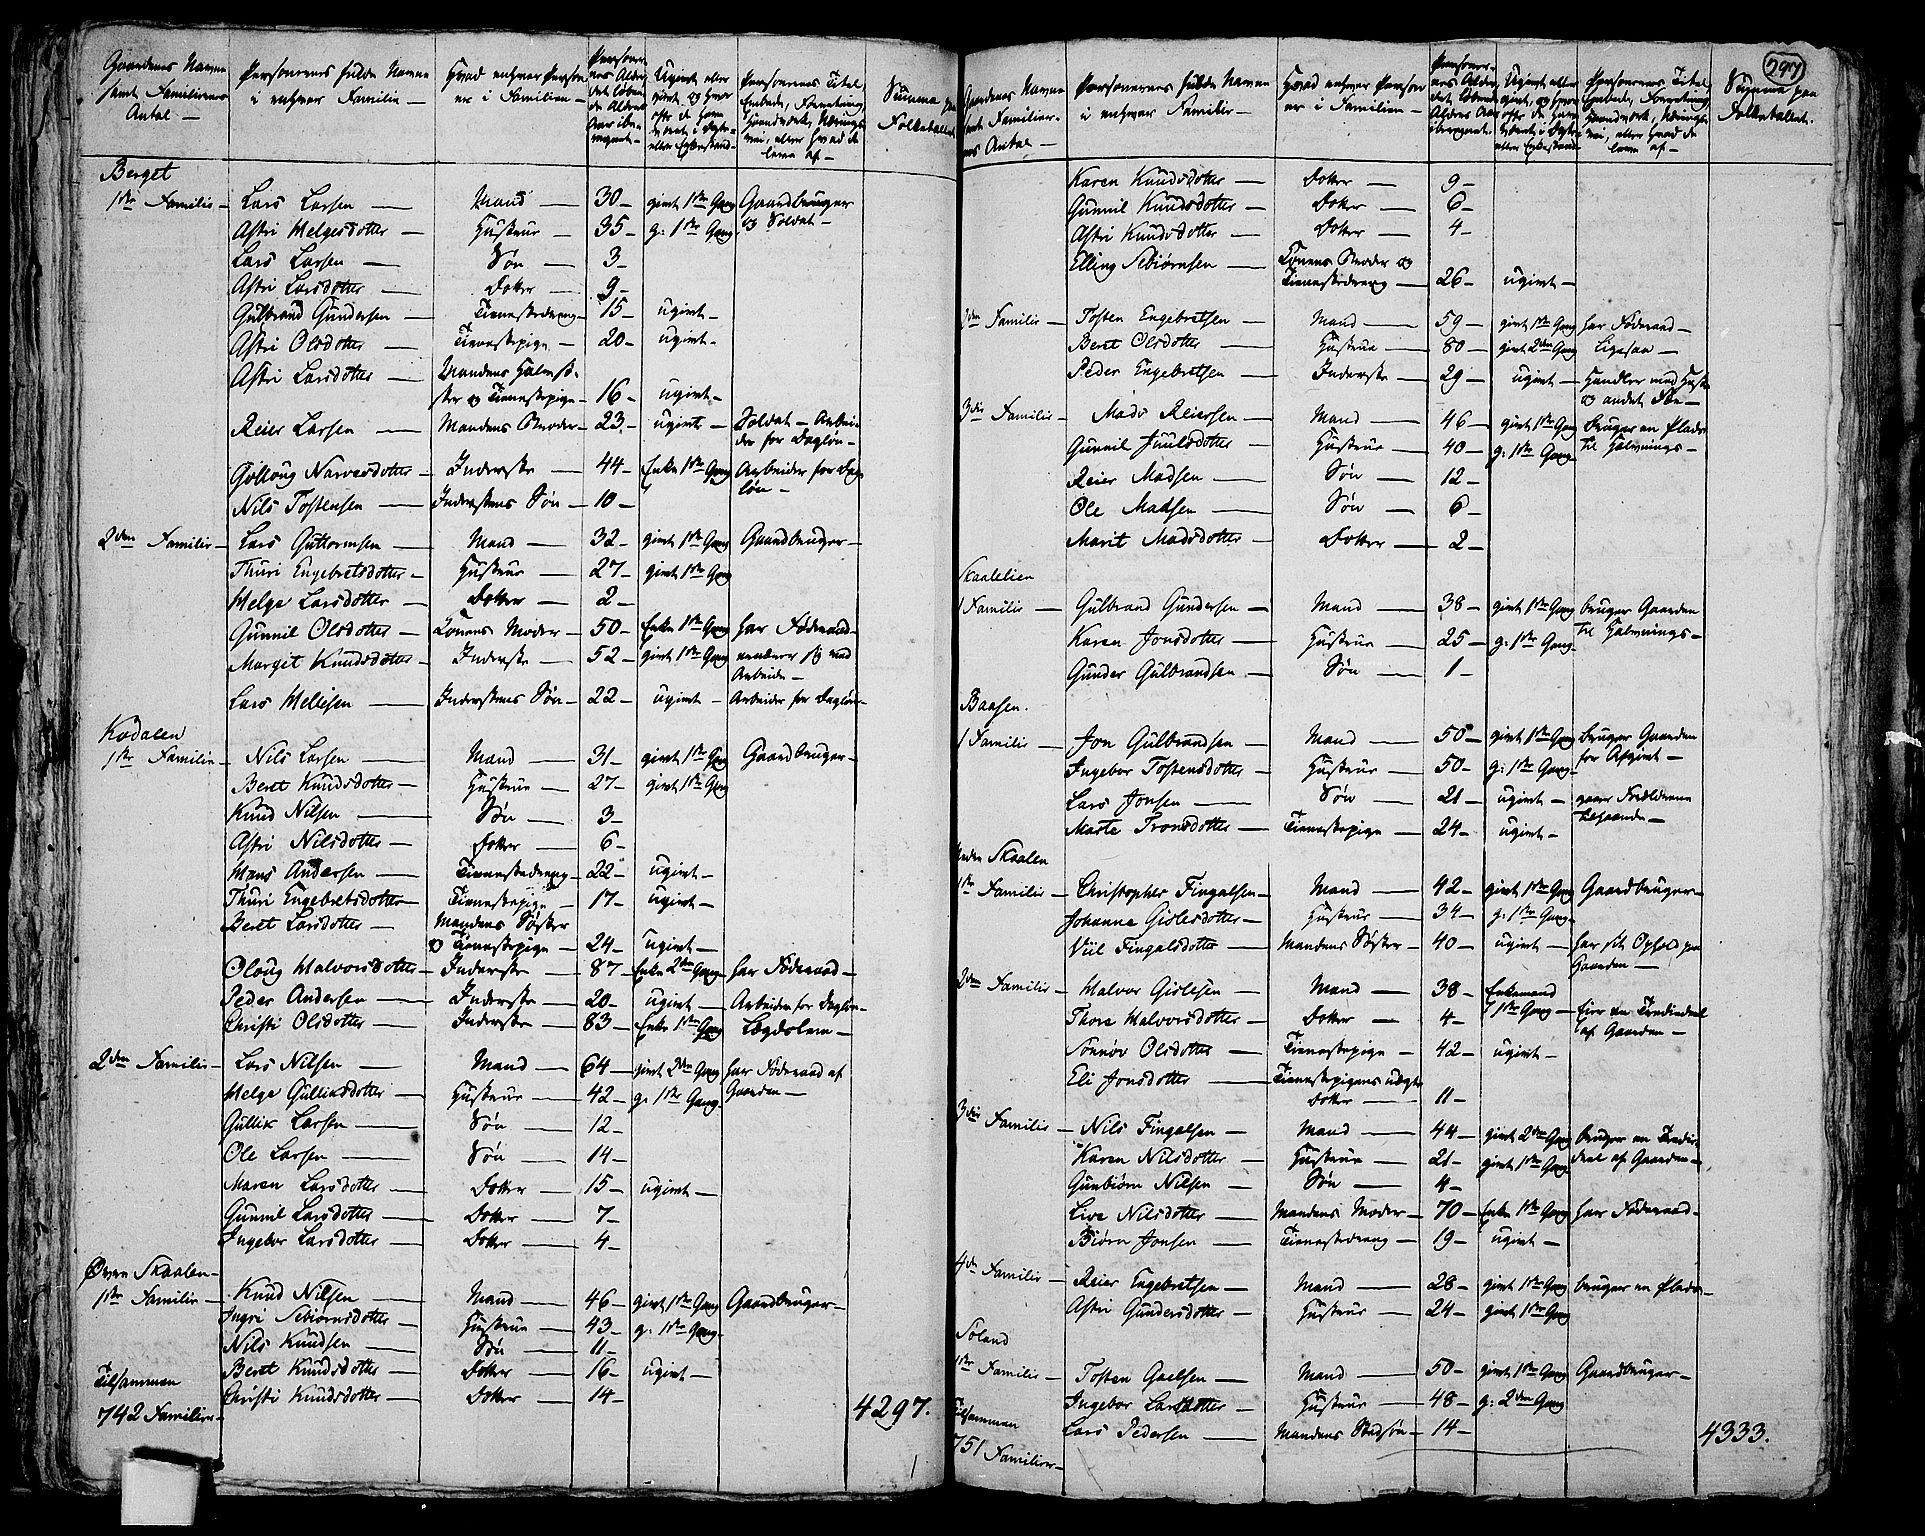 Gaardenes Navne samt Familiernes Antal —
Personernes fulde Navne i enhver Familie —
Hvad enhver Person er i Familien —
Personernes Alder det løbende Alders Aar iberegnet —
Ugivt eller givt, og hvor ofte de have været i Egte- eller Enkestand
Personernes Titel, Embede, Forretning, Haandværk, Næringsvei, eller hvad de leve af —
Summa paa Folketallet
Berget
1ste Familie — Lars Larsen — Mand — 30 — givt 1ste Gang Gaardbruger og Soldat —
Astri Helgesdotter — Hustrue — 35 — g: 1ste Gang
Lars Larsen — Søn — 3 —
Astri Larsdotter — Dotter — 9 —
Gulbrand Gundersen — Tienestedreng — 15 — ugivt —
Astri Olsdotter — Tienestepige — 20 — ugivt —
Astri Larsdotter — Mandens Halvsøster og Tienestepige — 16 — ugivt —
Reier Larsen — Mandens Broder — 23 — ugivt — Soldat — Arbeider for Dagløn —
Gollaug Narvesdotter — Inderste — 44 — Enke 1ste Gang Arbeider for Dagløn —
Nils Tostensen — Inderstens Søn — 10 —
2den Familie — Lars Guttormsen — Mand — 32 — givt 1ste Gang Gaardbruger —
Thuri Engebretsdotter — Hustrue — 27 — givt 1ste Gang
Helge Larsdotter — Dotter — 2 —
Gunnil Olsdotter — Konens Moder — 50 — Enke 1ste Gang har Føderaad —
Margit Knudsdotter — Inderste — 52 — givt 1ste Gang ernærer sig med Arbeide —
Lars Hellesen — Inderstens Søn — 22 — ugivt — Arbeider for Dagløn —
Kodalen
1ste Familie — Nils Larsen — Mand — 31 — givt 1ste Gang Gaardbruger —
Beret Knudsdotter — Hustrue — 27 — givt 1ste Gang
Knud Nilsen — Søn — 3 —
Astri Nilsdotter — Dotter — 6 —
Hans Andersen — Tienestedreng — 22 — ugivt —
Thuri Engebretsdotter — Tienestepige — 17 — ugivt —
Beret Larsdotter — Mandens Søster og Tienestepige — 24 — ugivt —
Oloug Halvorsdotter — Inderste — 87 — Enke 2den Gang — har Føderaad —
Peder Andersen — Inderste — 20 — ugivt — Arbeider for Dagløn —
Christi Olsdotter — Inderste — 83 — Enke 1ste Gang Lægdslem —
2den Familie — Lars Nilsen — Mand — 64 — givt 2den Gang har Føderaad af Gaarden —
Helge Gulliksdotter — Hustrue — 42 — g: 1ste Gang —
Gullik Larsen — Søn — 12 —
Ole Larsen — Søn — 14 —
Maren Larsdotter — Dotter — 15 — ugivt —
Gunnil Larsdotter — Dotter — 7 —
Ingebor Larsdotter — Dotter — 4 —
Øvre Skaalen —
1ste Familie — Knud Nilsen — Mand — 46 — givt 1ste Gang Gaardbruger —
Ingri Sebiørnsdotter — Hustrue — 43 — g: 1ste Gang —
Nils Knudsen — Søn — 11 —
Beret Knudsdotter — Dotter — 16 — ugivt —
Christi Knudsdotter — Dotter — 14 —
Tilsammen
742 Familier — 4297.
297
Gaardenes Navne samt Familiernes Antal —
Personernes fulde Navne i enhver Familie —
Hvad enhver Person er i Familien —
Personernes Alder det løbende Alders Aar iberegnet —
Ugivt eller givt, og hvor ofte de have været i Egte- eller Enkestand
Personernes Titel, Embede, Forretning, Haandværk, Næringsvei, eller hvad de leve af —
Summa paa Folketallet.
Karen Knudsdotter — Dotter — 9 —
Gunnil Knudsdotter — Dotter — 6 —
Astri Knudsdotter — Dotter — 4 —
Elling Sebiørnsen — Konens Broder og Tienestedreng — 26 — ugivt —
2den Familie — Tosten Engebretsen — Mand — 59 — givt 1ste Gang har Føderaad —
Beret Olsdotter — Hustrue — 80 — givt 2den Gang Ligesaa —
Peder Engebretsen — Inderste — 29 — ugivt — Handler med Heste og andet
3die Familie — Mads Reiersen — Mand — 46 — givt 1ste Gang Bruger en Plads til Halvnings —
Gunnil Juulsdotter — Hustrue — 40 — g: 1ste Gang —
Reier Madsen — Søn — 12 —
Ole Madsen — Søn — 6 —
Marit Madsdotter — Dotter — 2 —
Skaalelien
1 Familie — Gulbrand Gundersen — Mand — 38 — givt 1ste Gang bruger Gaarden til Halvnings —
Karen Jonsdotter — Hustrue — 25 — g: 1ste Gang —
Gunder Gulbrandsen — Søn — 1 —
Baasen.
1 Familie — Jon Gulbrandsen — Mand — 50 — givt 1ste Gang bruger Gaarden for Afgivt —
Ingebor Tostensdotter — Hustrue — 50 — g: 1ste Gang —
Lars Jonsen — Søn — 21 — ugivt — gaaer Forældrene tilhaande —
Marte Tronsdotter — Tienestepige — 24 — ugivt —
Neden Skaalen
1ste Familie — Christopher Fingalsen — Mand — 42 — givt 1ste Gang Gaardbruger —
Johanne Gislesdotter — Hustrue — 34 — g: 1ste Gang —
Viil Fingalsdotter — Mandens Søster — 40 — ugivt — har sit Ophold paa Gaarden —
2den Familie — Halvor Gislesen — Mand — 38 — Enkemand 1ste Gang — Eier en Trediedeel af Gaarden —
Thore Halvorsdotter — Dotter — 4 —
Sonnøv Olsdotter — Tienestepige — 42 — ugivt —
Eli Jonsdotter — Tienestepigens uægte Dotter — 11 —
3die Familie — Nils Fingalsen — Mand — 44 — givt 2den Gang bruger en Trediedeel af Gaarden —
Karen Nilsdotter — Hustrue — 21 — givt 1ste Gang
Gunbiørn Nilsen — Søn — 4 —
Live Nilsdotter — Mandens Moder — 70 — Enke 1ste Gang har Føderaad —
Biørn Jonsen — Tienestedreng — 19 — ugivt —
4de Familie — Reier Engebretsen — Mand — 28 — givt 1ste Gang bruger en Plads —
Astri Gundersdotter — Hustrue — 24 — givt 1ste Gang
Soland
1ste Familie — Tosten Gaelsen — Mand — 50 — givt 1ste Gang Gaardbruger —
Ingebor Larsdotter — Hustrue — 48 — g: 2den Gang
Lars Pedersen — Mandens Stedsøn — 14 —
Tilsammen
751 Familier — 4333.